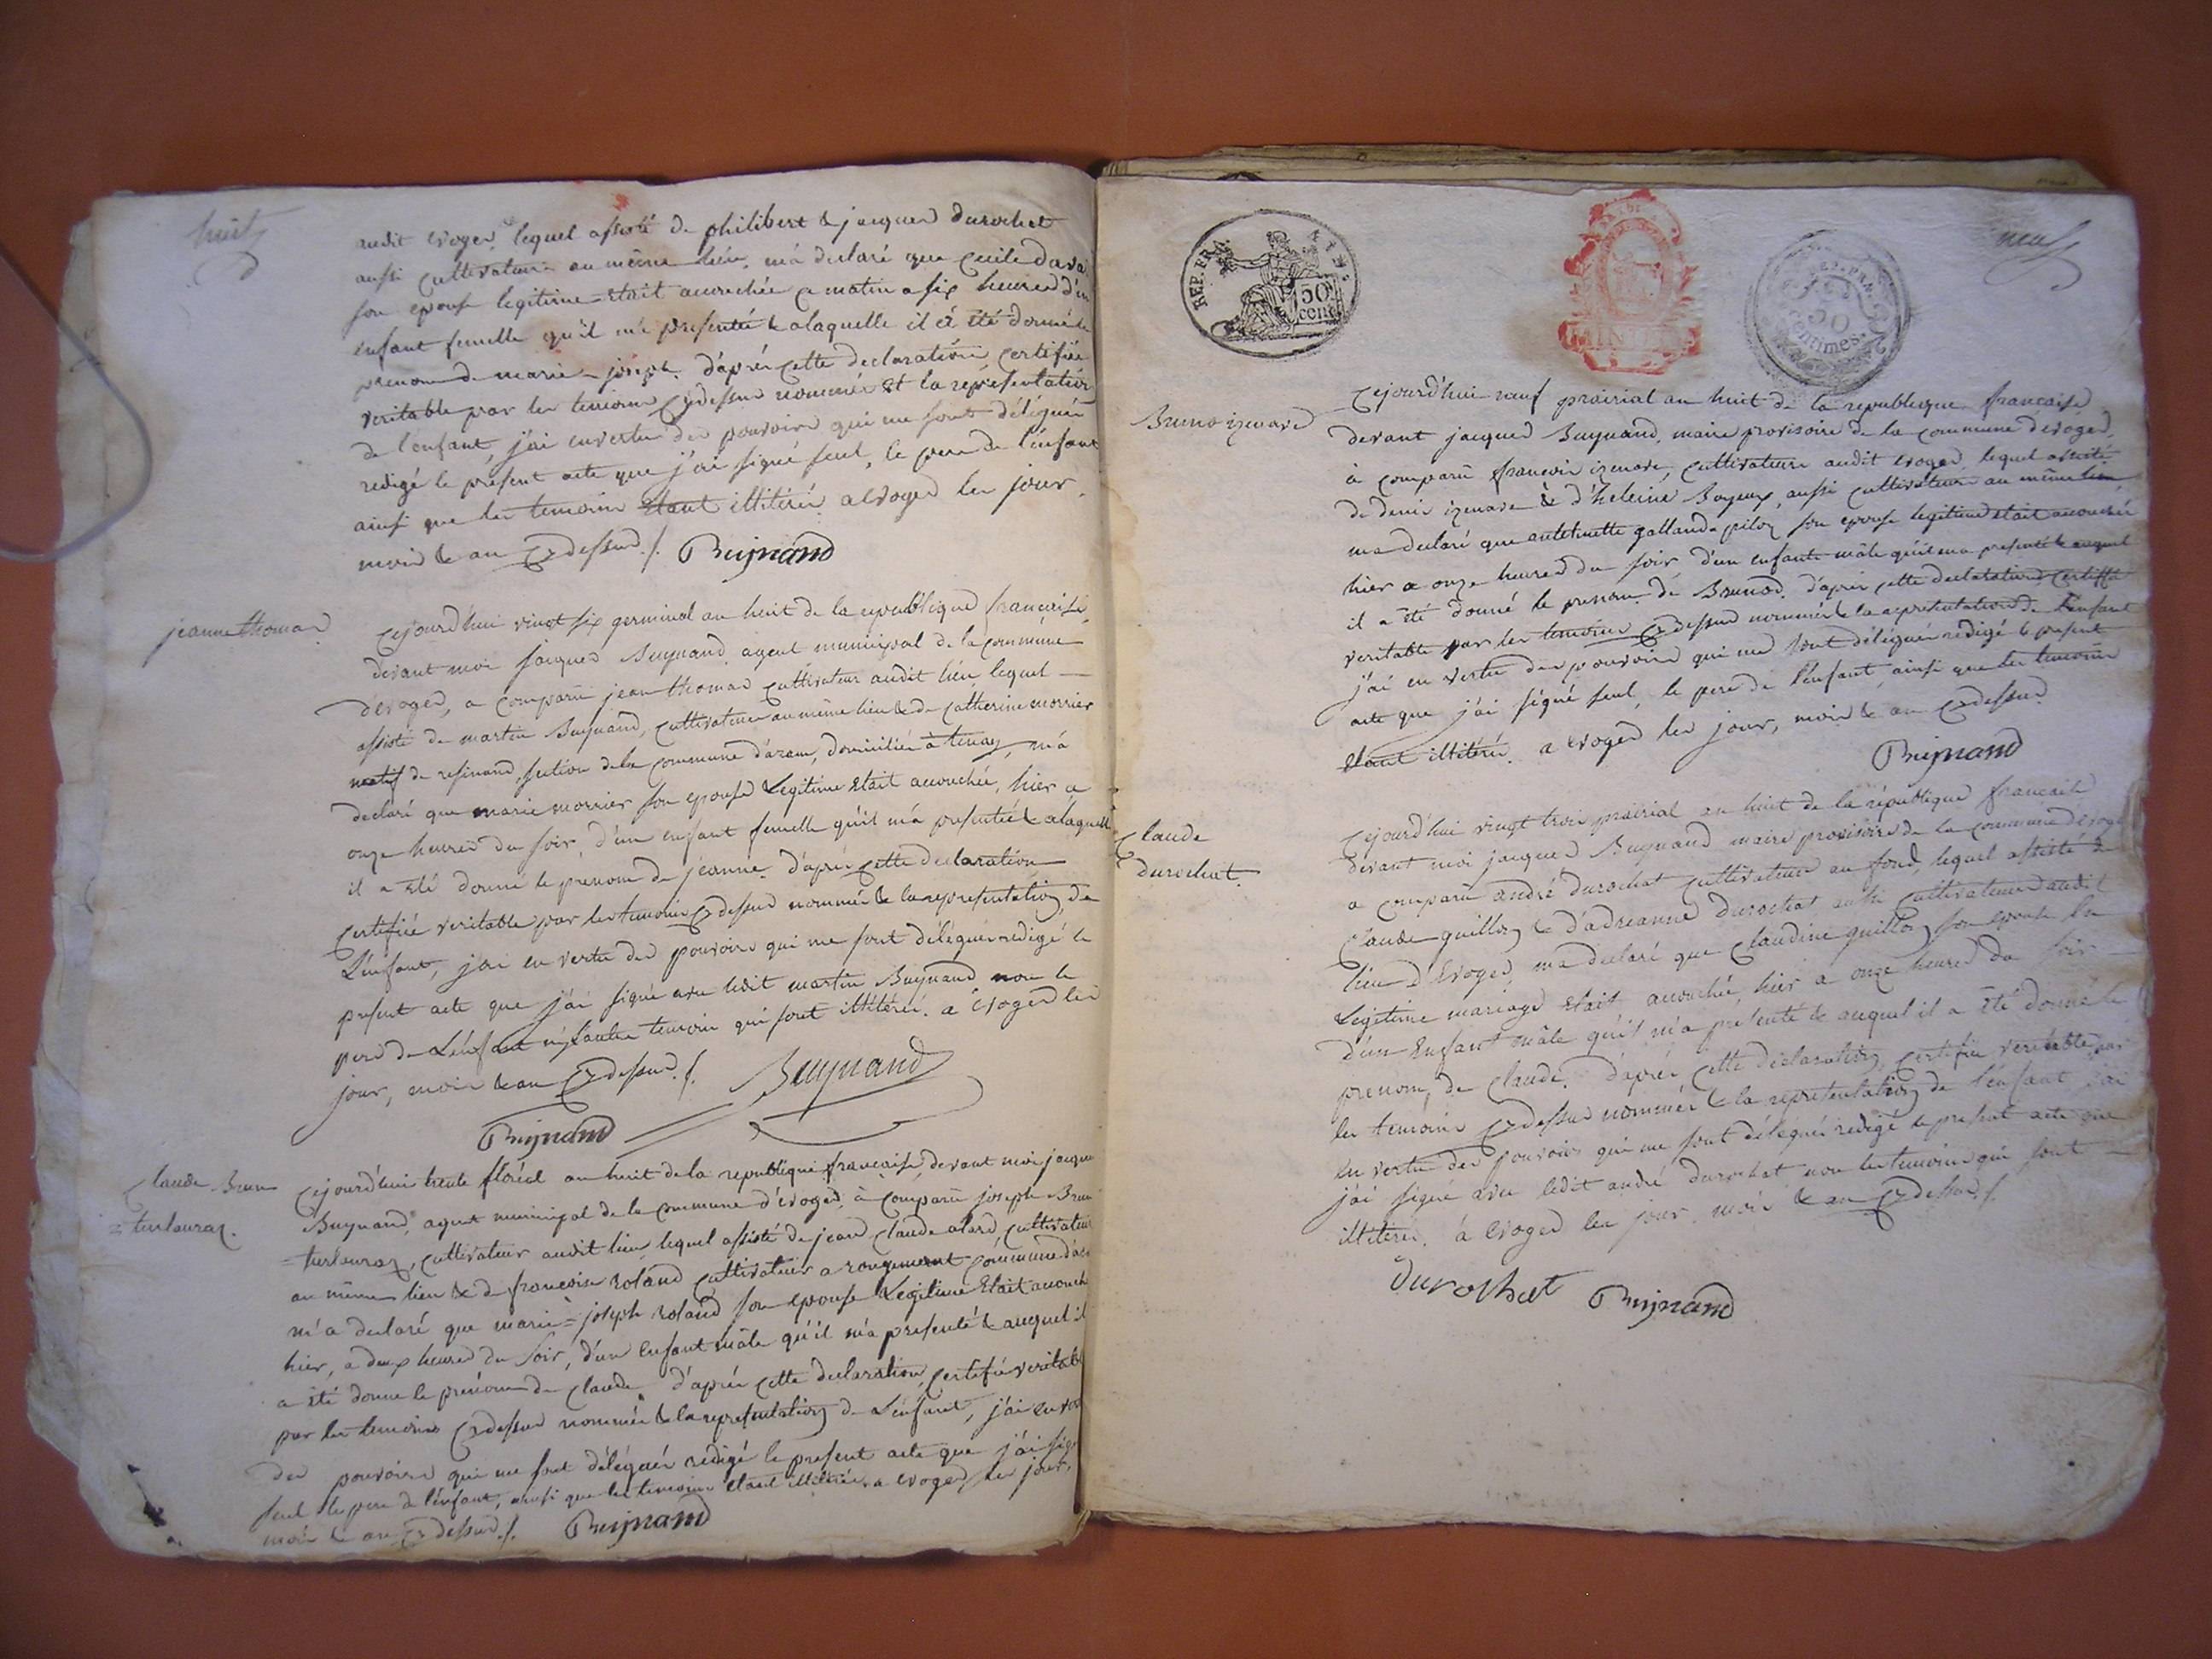 huit
audit evoges, lequel assisté de philibert & jacques durochat
aussi cultivateurs au même lieu, m'a declaré que Cecile dava
son epouse legitime etait accouchée ce matin a six heures d'un
enfant femelle qu'il m'a presentée & alaquelle il a été donné le
prenom de marie-joseph. d'après cette declaration certifiée
veritable par les temoins Cydessus nommés et la représentation
de l'enfant, j'ai envertu des pouvoirs qui me sont délégués
redigé le présent acte que j'ai signé seul, le pere de l'enfant
ainsi que les temoins etant illitérés a evoges les jour,
mois & an Cydessus ./. Buynand
jeanne thomas
Cejourd'hui vingt six germinal an huit de la republique francaise,
devant moi jacques Buynand, agent municipal de la commune
d'evoges, a comparu jean thomas cultivateur audit lieu, lequel
assisté de martin Buynand, cultivateur au même lieu & de catherine morrier
natif de resinand, section de la commune d'aranc, domiciliée à tenay, m'a
declaré que marie morrier son epouse Legitime etait accouchée, hier a
onze heures du soir, d'un enfant femelle qu'il m'a presentée & alaquelle
il a eté donné le prenom de jeanne. d'après cette declaration
certifiée veritable par les temoins Cydessus nommés & la representation de
L'enfant, j'ai en vertu des pouvoirs qui me sont délégués redigé le
present acte que j'ai signé avec ledit martin Buynand non le
pere de L'enfant ny L'autre temoin qui sont illitérés. a evoges les
jour, mois & an Cydessus ./. Buynand
Buynand
Claude Brun
=turlouraz.
Cejourd'hui trente floréal an huit de la republique francaise, devant moi jacques
Buynand, agent municipal de la commune d'evoges, à comparu joseph Brun
=turlouraz, cultivateur audit lieu, lequel assisté de jean claude alard, cultivateur
au même lieu & de francoise roland cultivateur a rougemont commune d'ara
m'a declaré que marie=joseph roland son epouse Legitime etait accouch
hier, a deux heures du soir, d'un enfant mâle qu'il m'a presenté & auquel il
a été donné le prénom de Claude. d'après cette declaration, certifiée veritable
par les temoins Cydessus nommés & la representation de L'enfant, j'ai en ver
des pouvoirs qui me sont délégués redigé le present acte que j'ai sig
seul le pere de l'enfant, ainsi que les temoins etant illitérés a evoges les jour,
mois & an Cydessus ./. Buynand
REP. FRA.
50
cent.
REP. FRA.
50
centimes.
neuf
Bruno izenave
Cejourd'hui neuf prairial an huit de la republique francaise
devant jacques Buynand, maire provisoire de la commune d'evoges,
à comparu francois izenave, cultivateur audit evoges, lequel assisté
de denis izenave & d'heleine Bozeux, aussi cultivateurs au même lieu
m'a declaré que antelmette galland-piloz son epouse legitime etait accouchée
hier a onze heures du soir d'un enfant mâle qu'il m'a presenté & auquel
il a été donné le prenom de Bruno. d'après cette declaration certiffié
veritable par les temoins Cydessus nommés & la representation de L'enfant
j'ai en vertu des pouvoirs qui me sont délégués redigé le present
acte que j'ai signé seul, le pere de l'enfant ainsi que les temoins
etant illitérés. a evoges les jour, mois & an Cydessus.
Buynand
Claude
durochat.
Cejourd'hui vingt trois prairial an huit de la république francaise
devant moi jacques Buynand maire provisoire de la commune d'evoge
a comparu andré durochat cultivateur au fond, lequel assisté de
Claude guilloz & d'adreanne durochat aussi cultivateurs audit
lieu d'evoges, m'a declaré que Claudine guilloz son epouse en
Legitime mariage etait accouchée, hier a onze heures du soir
d'un enfant mâle qu'il m'a presenté & auquel il a été donné le
prenom de Claude. d'après cette déclaration, certifiée veritable par
les temoins Cydessus nommés & la representation de l'enfant j'ai
en vertu des pouvoirs qui me sont délégués redigé le present acte que
j'ai signé avec ledit andré durochat non les temoins qui sont
illitérés. à evoges les jour, mois & an Cydessus ./.
durochat Buynand